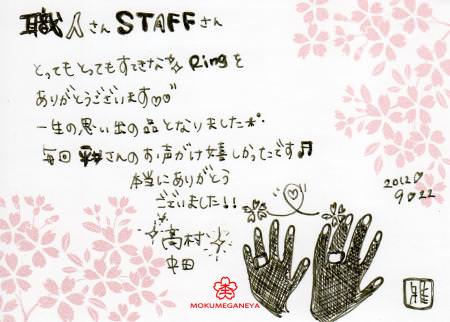 職人さんSTAFFさん
とってもとってもすてきなRingを
ありがとうございます♡♡
一生の思い出の品となりました
毎回平井さんのお声がけ嬉しかったです♬
本当にありがとう
ございました!!
高村
中田
2012
9♡22
雅
MOKUMEGANEYA